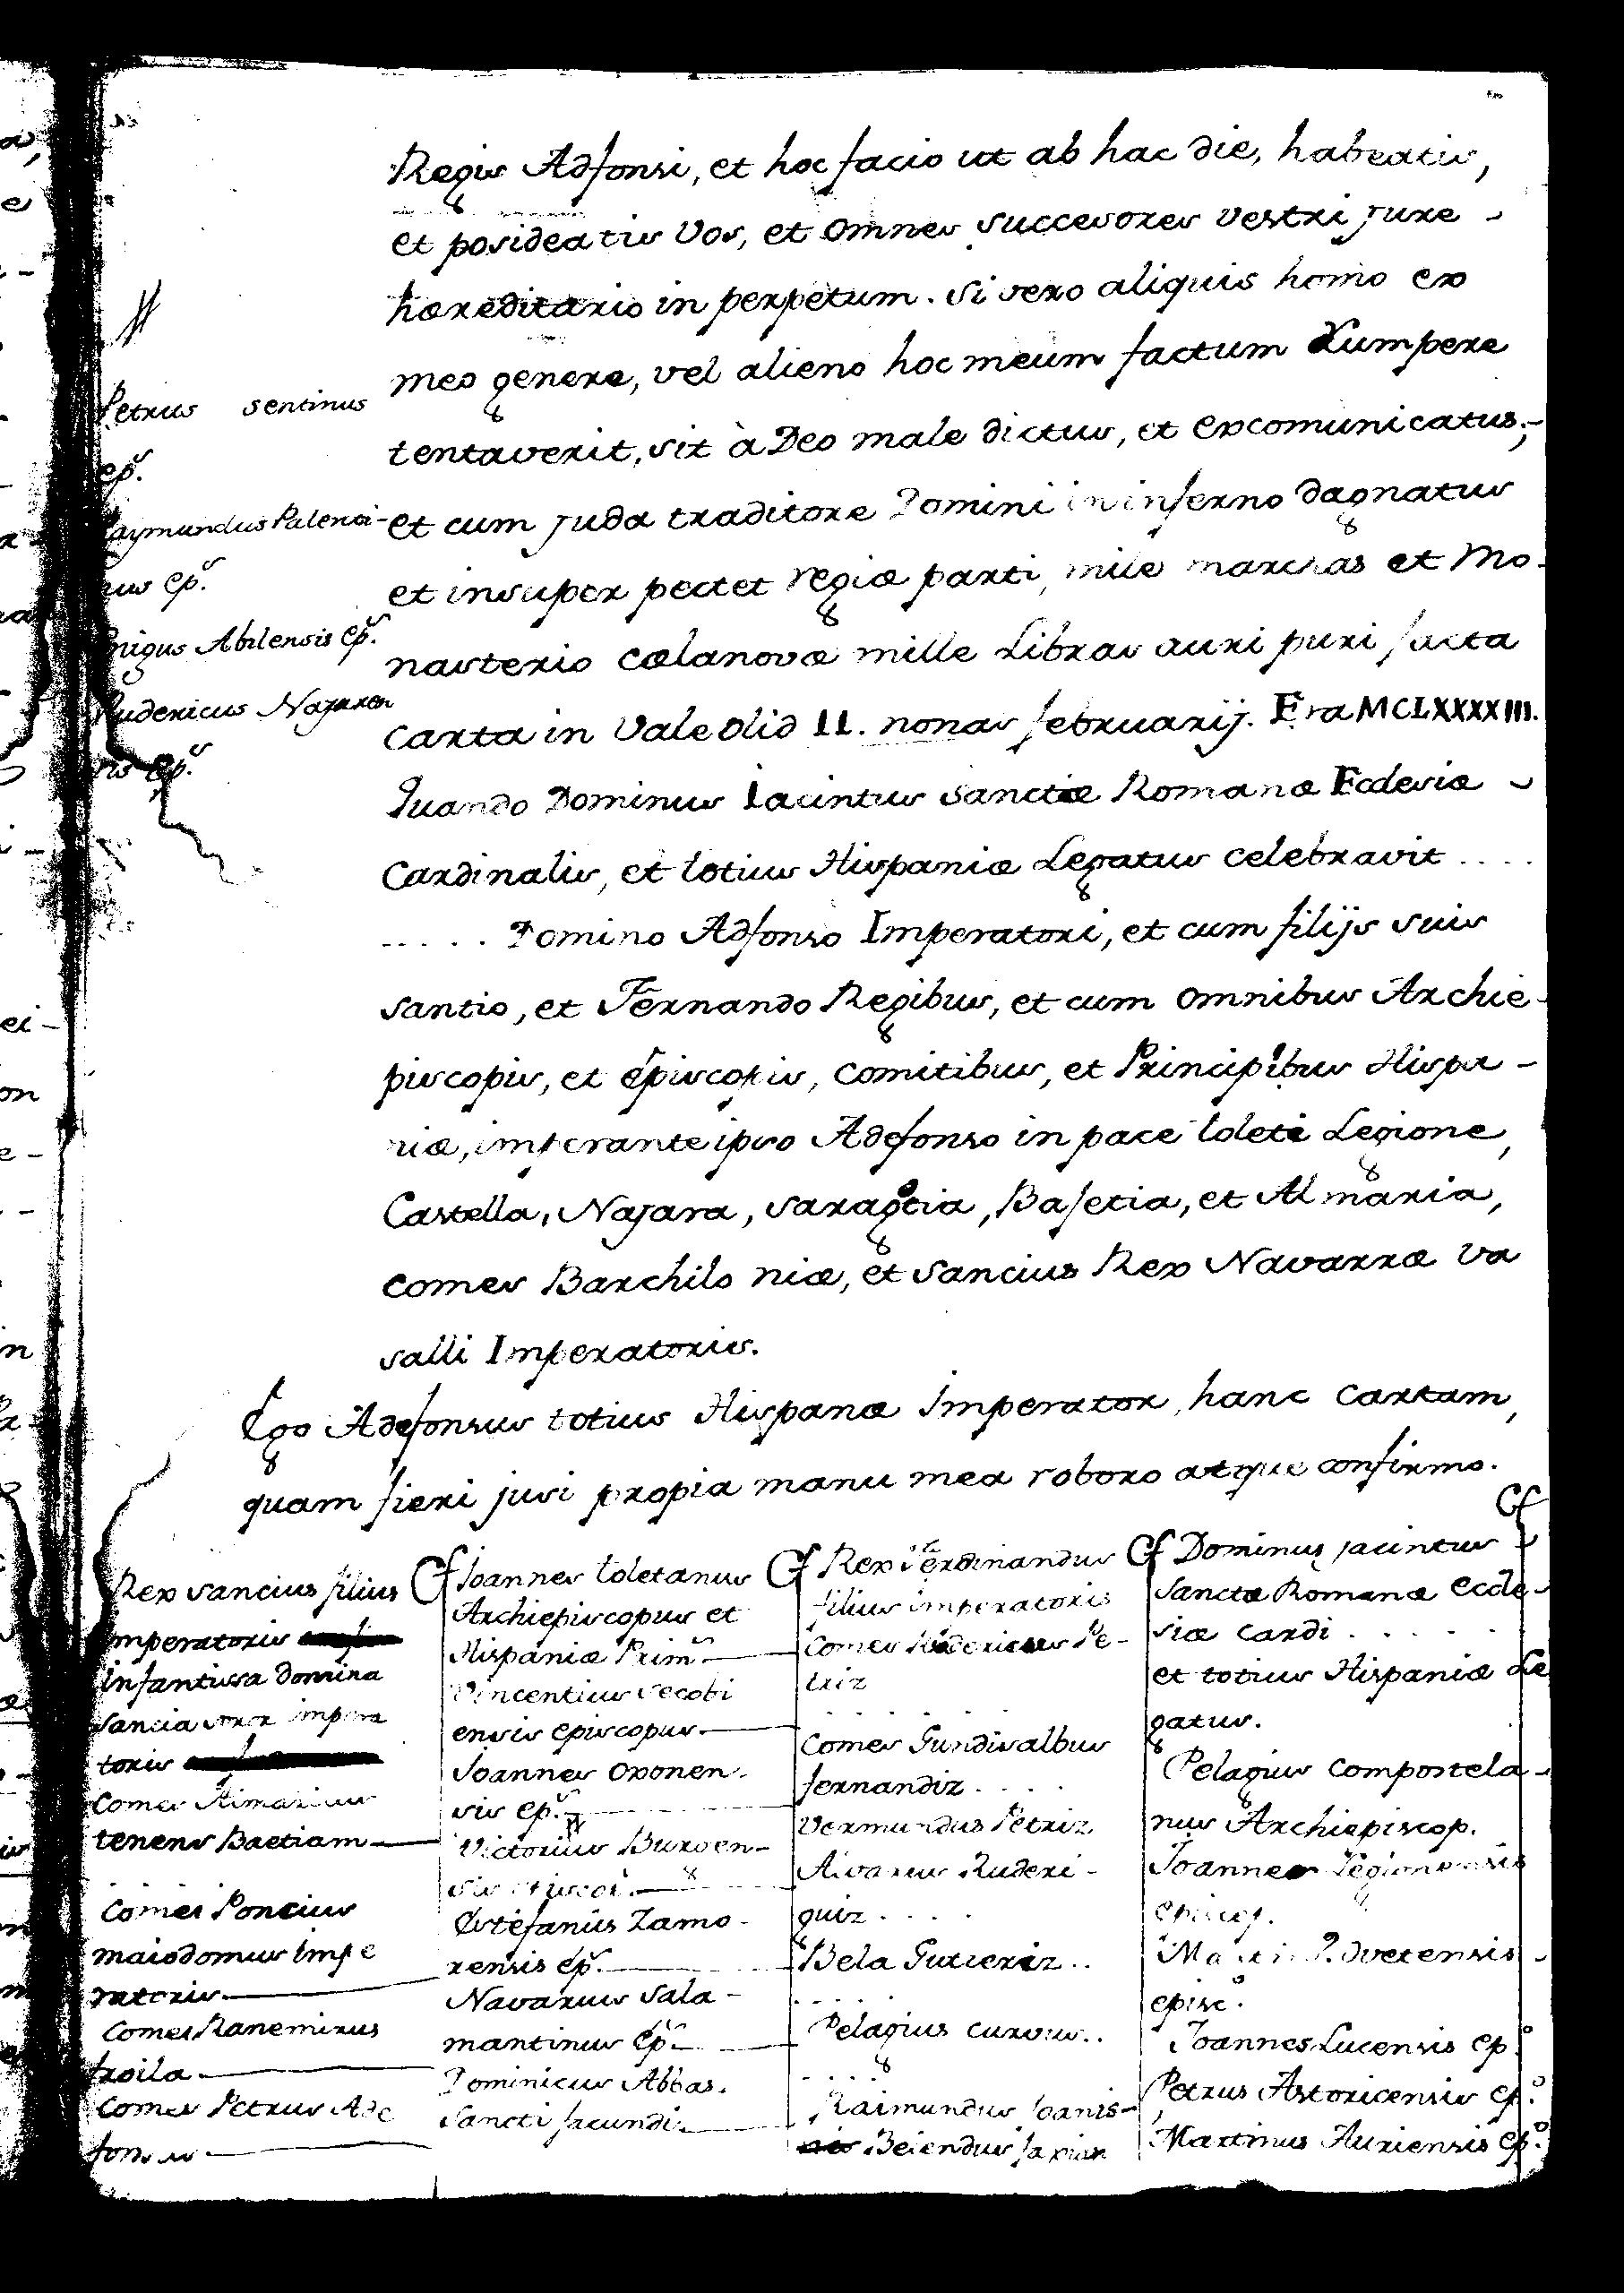 Regis Adfonsi, et hoc facio ut ab hac die, habeatis,
et posideatis Vos, et omnes succesores vestri jure
hæreditario in perpetum. Si vero aliquis homo ex
meo genere, vel alieno hoc meum factum Rumpere
tentaverit, sit à Deo male dictus, et excomunicatus,
et cum Juda traditore Domini in inferno dagnatus
et insuper pectet regiæ parti, mille marchas et Mo-
nasterio Cælanovæ mille Libras auri puri facta
carta in Vale olid II. nonas februarij. Era MCLXXXXIII.
Quando Dominus Iacintus sanctæ Romanæ Ecclesiæ
Cardinalis, et totius Hispaniæ Legatus celebravit ....
..... Domino Adfonso Imperatori, et cum filijs suis
santio, et Fernando Regibus, et cum omnibus Archie-
piscopis, et episcopis, comitibus, et Principibus Hispa-
niæ, imperante ipso Adefonso in pace toleti Legione,
Castella, Najara, saragotia, Basetia, et Almaria,
comes Barchilo niæ, et sancius Rex Navarræ va
salli Imperatoris.
Ego Adefonsus totius Hispanæ Imperator, hanc cartam,
quam fieri jusi propia manu mea roboro atque confirmo.
Petrus sentinus
ep.
Raymundus Palenci-
nus ep.
Enigus Abilensis ep.
Rudericus Najaren
sis ep.
Rex sancius filius
Imperatoris
Infantissa domina
sancia soror impera
toris
Comes Almaricus
tenens Baetiam
Comes Poncius
maiodomus impe
ratoris
Comes Ranemirus
froila
Comes Petrus Ade
fonsus
Cf Joannes toletanus
Archiepiscopus et
Hispaniæ Prim.
Vincentius secobi
ensis episcopus.
Joannes oxonen-
sis ep.
Victorius Burgen-
sis episcop.
Estefanus Zamo-
rensis ep.
Navarrus Sala-
mantinus ep.
Dominicus Abbas.
Sancti facundi
Cf Rex Ferdinandus
filius imperatoris
Comes Rudericus Pe-
triz
.....
Comes Gundisalbus
fernandiz ....
Vermundus Petriz
Alvarus Ruderi-
quiz ....
Bela Gutierriz ..
.....
Pelagius curvus ..
....
Raimundus Joanis-
Beiendus
Cf Dominus jacintus Cf
Sanctæ Romanæ eccle-
siæ cardi .....
et totius Hispaniæ Le
gatus.
Pelagius Compostela-
nus Archiepiscop.
Joannes Legionensis
episcop.
Martin. Ovetensis
episc.
Joannes Lucensis ep.
Petrus Astoricensis ep.
Martinus Auriensis ep.